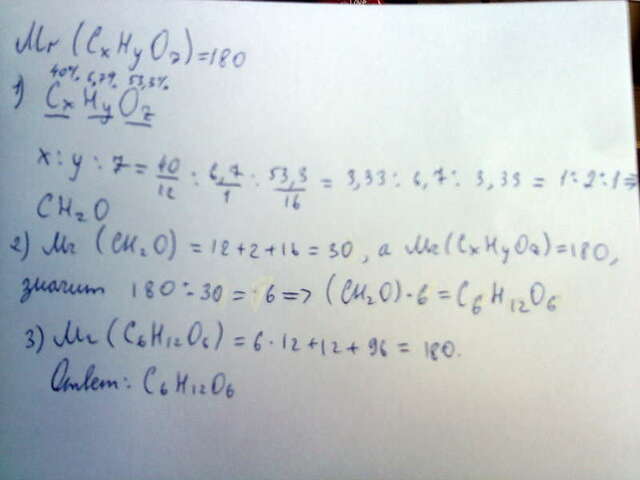 Mr (CxHyOz)=180
40% 6,7% 53,3%
1) CxHyOz
x : y : z = 40/12 : 6,7/1 : 53,3/16 = 3,33 : 6,7 : 3,33 = 1:2:1 ⇒
CH2O
2) Mr (CH2O) = 12+2+16 = 30, а Mr(CxHyOz)=180,
значит 180 : 30 = 6 => (CH2O)·6 = C6H12O6
3) Mr (C6H12O6) = 6·12+12+96 = 180.
Ответ: C6H12O6